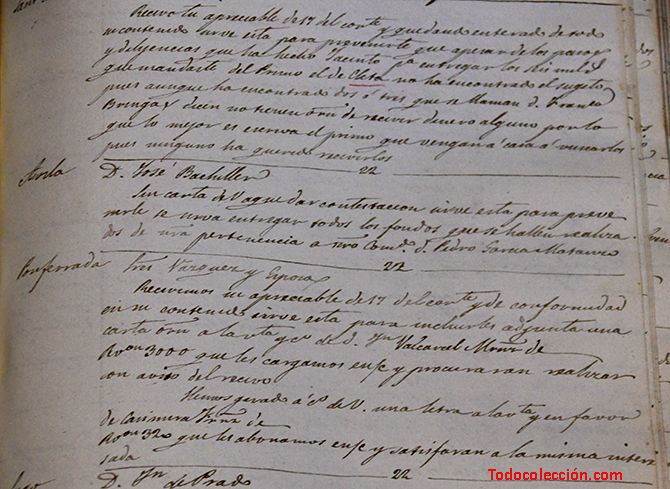 Recivo tu apreciable de 17 del corte y quedando enterado de todo
su contenido sirve esta para prevenirte que apesar de los pasos
y delijencias que ha hecho Jacinto pa entregar los seis mil
que mandaste del Primo el de no ha encontrado el sugeto
pues aunque ha encontrado dos ó tres que se llaman d. Franco
Bringas dicen no tienen orn de recivir dinero alguno por lo
que lo mejor es escriva el primo que vengan á casa á buscarlos
pues ninguno ha querido recivirlos 22
Avila D. José Bachiller
Sin carta de V. a que dar contestacion sirve esta para preve
nirle se sirva entregar todos los fondos que se hallen realiza
dos de nra pertenencia a nro Comdo d. Pedro Garcia
22
Ponferrada Sres Vazquez y Esposa
Recivimos su apreciable de 17 del corte y de conformidad
en su contenido sirve esta para incluirles adjunta una
carta orn a la vta y co de d. Jn Valcarcel de
Rvon 3000 que les cargamos en fe y procuraran realizar
con aviso del recivo
Hemos girado á co de V. una letra a la vta y en favor
de Casimira de
Rvon 320 que les abonamos en fe y satisfaran a la misma intere
sada 22
D. Jn de Prado
Todocolección.com